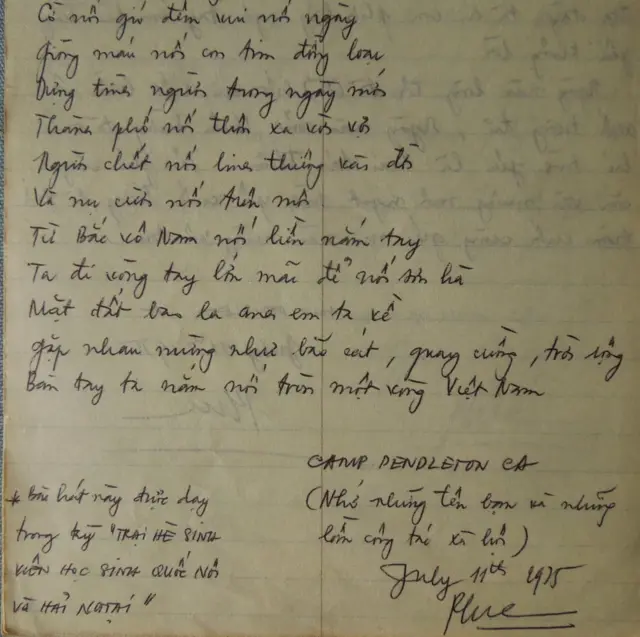 Cờ nối gió đêm vui nối ngày
Giòng máu nối con tim đồng loại
Dựng tình người trong ngày mới
Thành phố nối thôn xa vời vợi
Người chết nối linh thiêng vào đời
Và nụ cười nối trên môi
Từ Bắc vô Nam nối liền nắm tay
Ta đi vòng tay lớn mãi để nối sơn hà
Mặt đất bao la anh em ta về
gặp nhau mừng như bão cát, quay cuồng, trời rộng
Bàn tay ta nắm nối tròn một vòng Việt Nam
CAMP PENDLETON CA
(Nhớ những tên bạn và những
lần công tác xã hội)
July 11th 1975
* Bài hát này được dạy
trong kỳ "TRẠI HÈ SINH
VIÊN HỌC SINH QUỐC NỘI
VÀ HẢI NGOẠI"